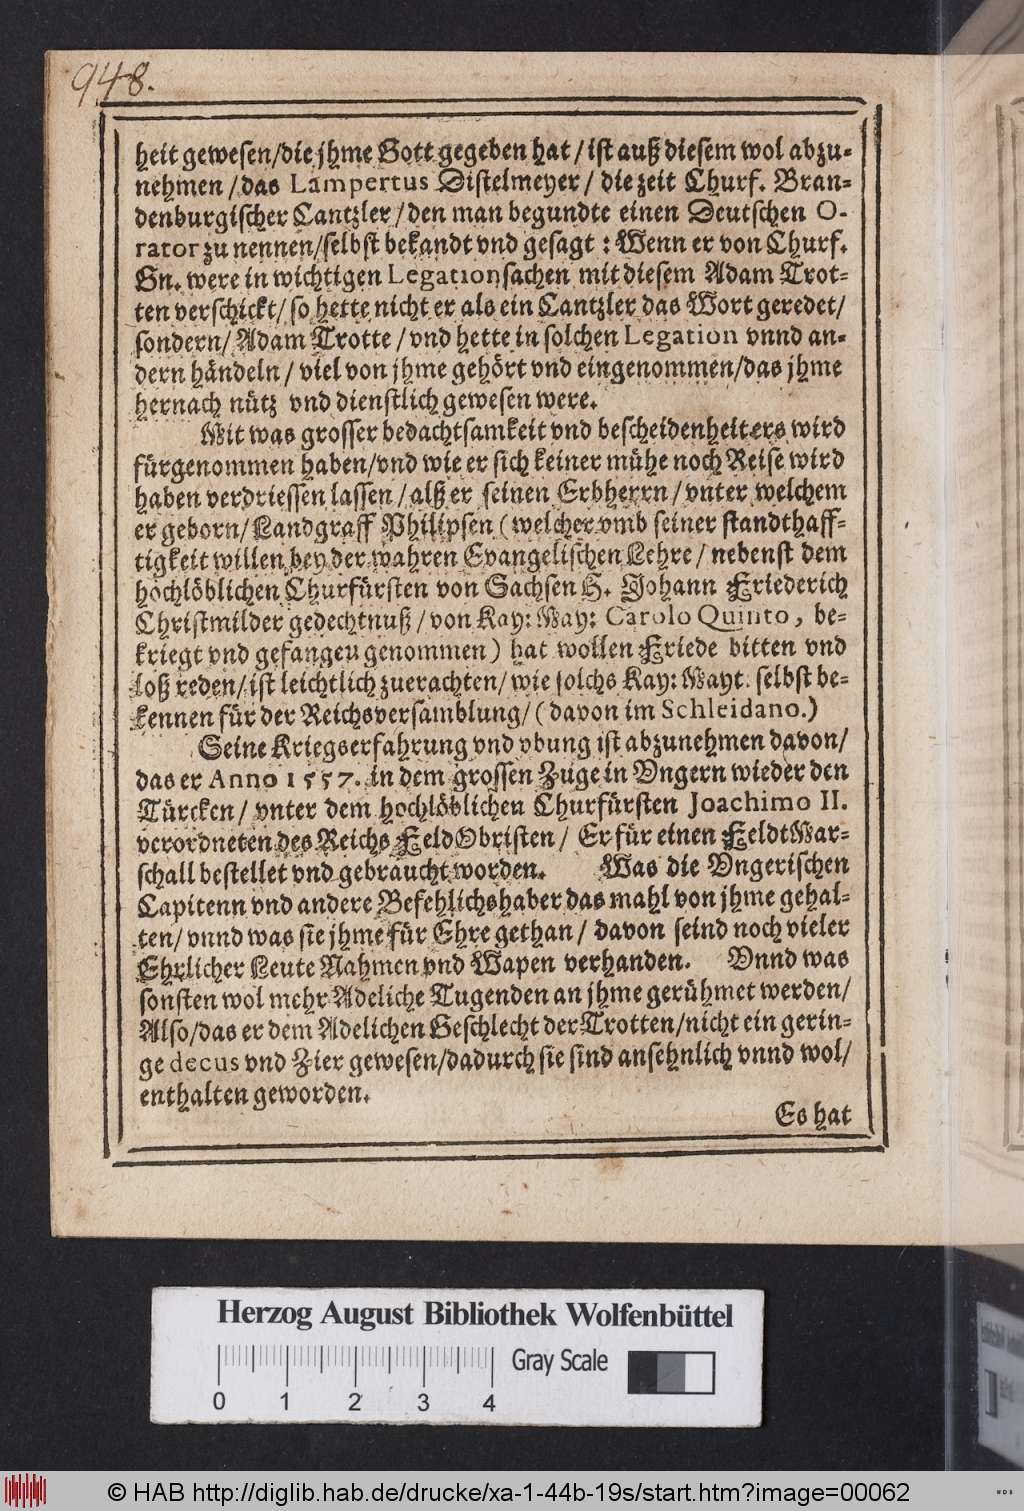 948.
heit gewesen/die jhme Gott gegeben hat / ist auß diesem wol abzu-
nehmen / das Lampertus Distelmeyer / die zeit Churf. Bran-
denburgischer Cantzler / den man begundte einen Deutschen O-
rator zu nennen/selbst bekandt vnd gesagt : Wenn er von Churf.
Gn. were in wichtigen Legationsachen mit diesem Adam Trot-
ten verschickt/ so hette nicht er als ein Cantzler das Wort geredet/
sondern/ Adam Trotte / vnd hette in solchen Legation vnnd an-
dern händeln / viel von jhme gehört vnd eingenommen/das jhme
hernach nütz vnd dienstlich gewesen were.
Mit was grosser bedachtsamkeit vnd bescheidenheit ers wird
fürgenommen haben/vnd wie er sich keiner mühe noch Reise wird
haben verdriessen lassen / alß er seinen Erbherrn / vnter welchem
er geborn/ Landgraff Philipsen ( welcher vmb seiner standthaff-
tigkeit willen bey der wahren Evangelischen Lehre / nebenst dem
hochlöblichen Churfürsten von Sachsen H. Johann Friederich
Christmilder gedechtnuß / von Kay: May: Carolo Quinto, be-
kriegt vnd gefangen genommen ) hat wollen Friede bitten vnd
loß reden/ ist leichtlich zuerachten/ wie solchs Kay: Mayt. selbst be-
kennen für der Reichsversamblung/ ( davon im Schleidano.)
Seine Kriegserfahrung vnd vbung ist abzunehmen davon/
das er Anno 1557. in dem grossen Zuge in Vngern wieder den
Türcken / vnter dem hochlöblichen Churfürsten Joachimo II.
verordneten des Reichs FeldObristen / Er für einen FeldtMar-
schall bestellet vnd gebraucht worden. Was die Vngerischen
Capitenn vnd andere Befehlichshaber das mahl von jhme gehal-
ten/ vnnd was sie jhme für Ehre gethan / davon seind noch vieler
Ehrlicher Leute Nahmen vnd Wapen verhanden. Vnnd was
sonsten wol mehr Adeliche Tugenden an jhme gerühmet werden/
Also/das er dem Adelichen Geschlecht der Trotten/nicht ein gerin-
ge decus vnd Zier gewesen/dadurch sie sind ansehnlich vnnd wol/
enthalten geworden.
Es hat
Herzog August Bibliothek Wolfenbüttel
Gray Scale
0 1 2 3 4
© HAB http://diglib.hab.de/drucke/xa-1-44b-19s/start.htm?image=00062